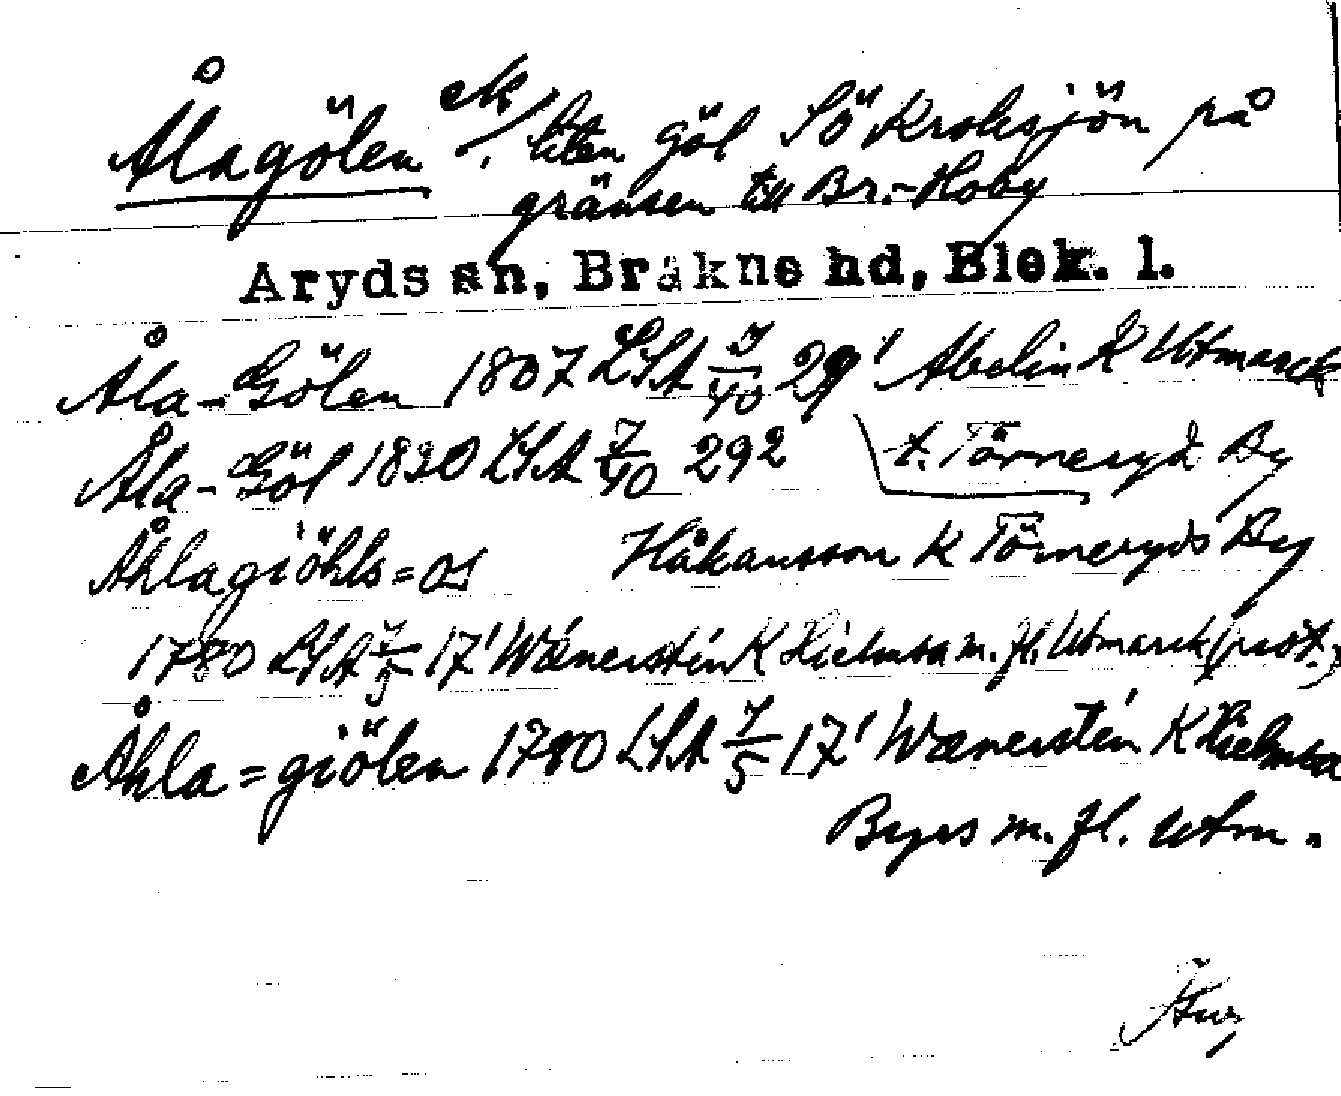 Ålagölen ek/. liten göl Sö Kroksjön på
gränsen till Br.-Hoby
Aryds sn, Bräkne hd, Blek. l.
Åla-Gölen 1807 LSA 7/40 29' Abelin K Utmarck
t. Törneryd By
Åla-Göl 1830 LSA 7/40 292
Håkansson K Törneryds By
Åhlagiöhls=os
1780 LSA 7/5 17' Wænerstén K Hielmsa m. fl. Utmarck (prot.)
Åhla=giölen 1780 LSA 7/5 17' Wænerstén K Hielmsa
Byes m. fl. utm.